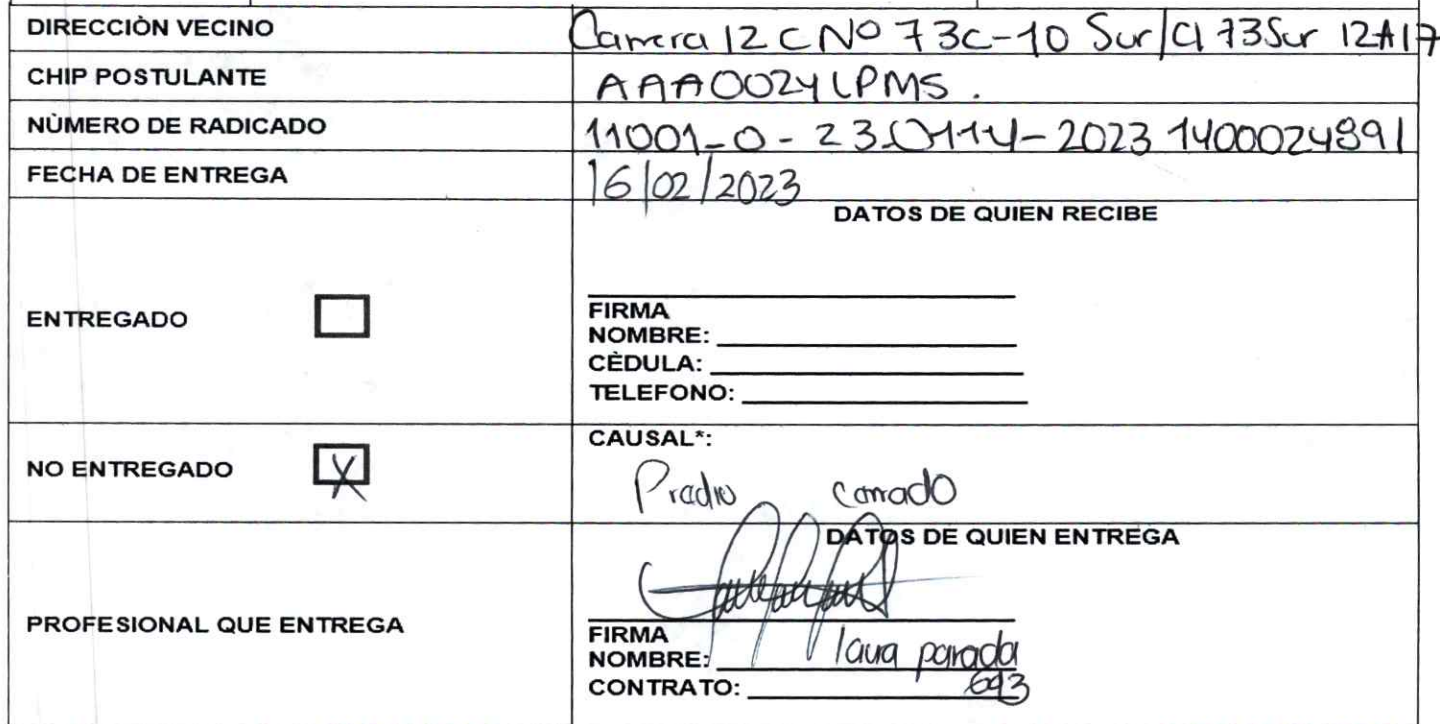 DIRECCIÒN VECINO Carrera 12 C Nº 73C-10 Sur/Cl 73 Sur 12A17
CHIP POSTULANTE AAA0024LPMS.
NÙMERO DE RADICADO 11001-0-23.0114-2023 1400024891
FECHA DE ENTREGA 16/02/2023
DATOS DE QUIEN RECIBE
ENTREGADO
FIRMA
NOMBRE:
CÈDULA:
TELEFONO:
NO ENTREGADO X
CAUSAL*:
Predio cerrado
DATOS DE QUIEN ENTREGA
PROFESIONAL QUE ENTREGA
FIRMA
NOMBRE: laura parada
CONTRATO: 693